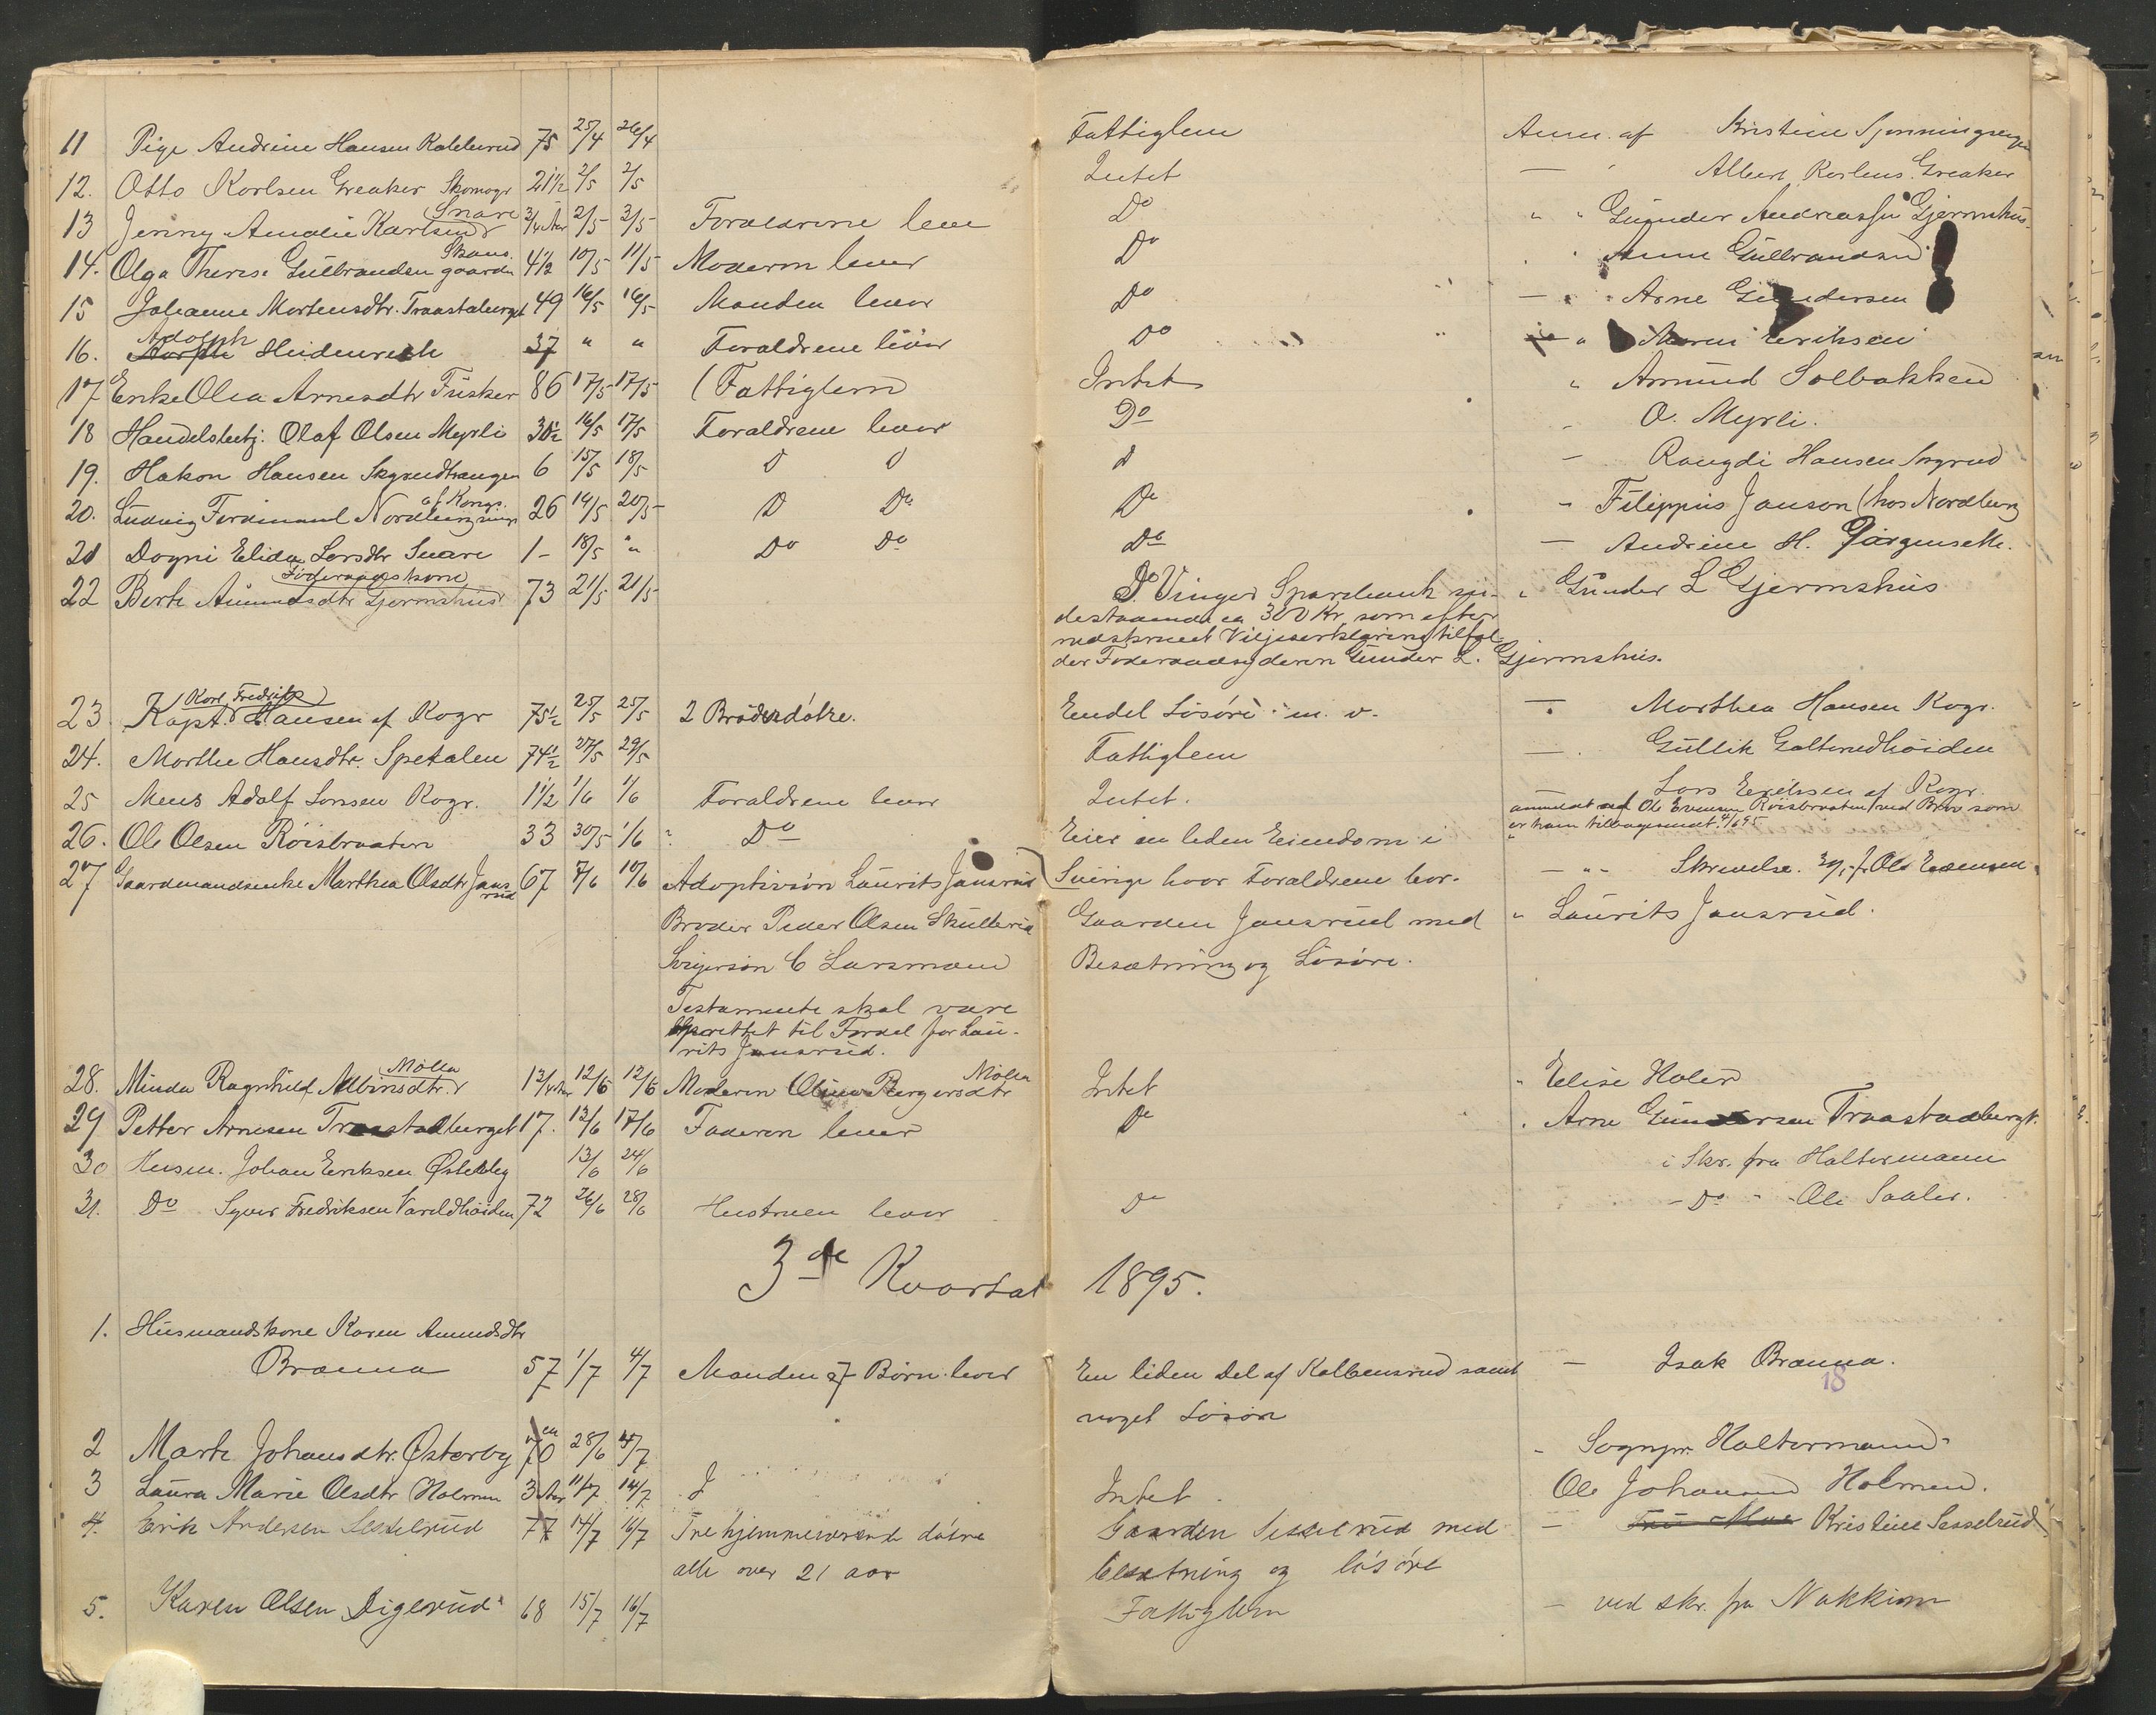 11 Pige Andrine Hansen Kalderud 75 25/4 26/4 Fattiglem Anm. af Kristine
12. Otto Karlsen Greaker Skomagr 21 1/2 2/5 2/5 Intet — Albert Karlsens Greaker
Snare
13 Jenny Amalie Karlsend 3/4 Aar 2/5 3/5 Forældrene leve Do " " Gunder Andreassen Gjermshus
Skans
14. Olga Therese Gulbranden gaarden 4 1/2 10/5 11/5 Moderen lever Do Anne Gulbrandsen
15 Johanne Mortensdtr. Traastaberget 49 16/5 16/5 Manden lever Do — " Arne Gundersen
Adolph
16. Heidenreich 37 " " Forældrene lever Do " Maren Eriksen
17 Enke Olea Arnesdtr Fusker 86 17/5 17/5 (Fattiglem) Intet " Amund Solbakken
18 Handelsbetj. Olaf Olsen Myrli 30 1/2 16/5 17/5 Forældrene lever Do - O. Myrli.
19. Hakon Hansen Skyrudhaugen 6 15/5 18/5 D D d — Rangdi Hansen
af Kongs.
20. Ludvig Ferdinand Nordberg 26 14/5 20/5 D Do Do - Filippus Janson (hos Nordberg
21 Dagni Elida Larsdtr Snare 1- 18/5 " Do Do Do — Andrine H. Jørgenseth.
Føderaadskone
22 Berte Amundsdtr Gjermshus 73 21/5 21/5 Do Vinger Sparebank in- " Gunder L Gjermshus
destaaende ca 300 Kr som efter
nedskrevet Viljeserklæring tilfal-
der Føderaadsyderen Gunder L. Gjermshus.
Karl Fredrik
23. Kapt. Hansen af Kogr 75 1/2 25/5 25/5 2 Broderdøtre. Endel Løsøre m. v. — Marthea Hansen Kogr.
24. Marthe Hansdtr. Spetalen 74 1/2 27/5 29/5 Fattiglem — Gullik Galterudhøiden
25 Mens Adolf Larsen Kogr. 1 1/2 1/6 1/6 Forældrene lever Intet. Lars Eriksen af Kogr.
anmeldt ved Ole Evensen Røisbraaten ved Brev som
er ham tilbagesendt 4/6 95
26. Ole Olsen Røisbraaten 33 30/5 1/6 " Do Eier en liden Eiendom i
27 Gaardmandsenke Marthea Olsdtr Jans-rud 67 7/6 10/6 Adoptivsøn Laurits Jansrud Sverige hvor Forældrene bor. — " - Skrivelse. fr Ole Evensen
Broder Peder Olsen Skulterud Gaarden Jansrud med " Laurits Jansrud.
Svigersøn C Larsmoen Besætning og Løsøre.
Testamente skal være
oprettet til Fordel for Lau-
rits Jansrud.
Mølla Mølla
28. Minda Ragnhild Albinsdtr. 1 3/4 Aar 12/6 12/6 Moderen Oline Bergersdtr Intet " Elise Holen
29 Petter Arnesen Traastadberget 17. 13/6 17/6 Faderen lever Do . Arne Gundersen Traastadbergt.
30 Husm. Johan Eriksen Østerby 13/6 24/6 i Skr. fra Haltermann
31. Do Syver Fredriksen Vareldhøiden 72 26/6 28/6 Hustruen lever Do - Do - Ole Saaler.
3de Kvartal 1895.
1. Husmandskone Karen Amundsdtr
Brænna 57 1/7 4/7 Manden & 7 Børn lever En liden Del af Kolbensrud samt — Isak Brænna.
18
noget Løsøre
2 Marte Johansdtr. Østerby 70 28/6 4/7 - Sognpr. Haltermann
3 Laura Marie Olsdtr Holmen 3 Aar 11/7 14/7 Intet. Ole Johansen Holmen.
4. Erik Andersen Sesselrud 77 14/7 16/7 Tre hjemmeværende døtre Gaarden Sesselrud med — Kristine Sesselrud
alle over 21 aar besætning og løsøre
5. Karen Olsen Digerud 68 15/7 16/7 Fattiglem — ved skr. fra Nakkim